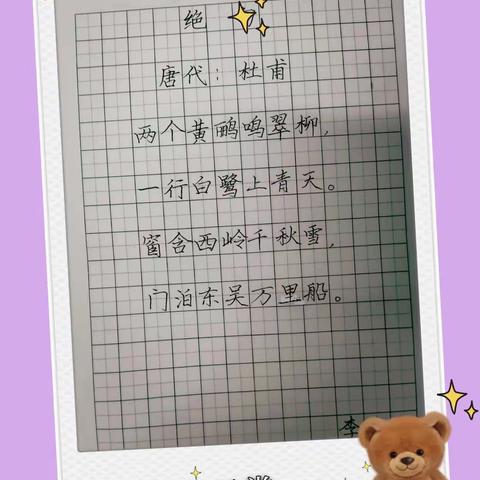 绝
唐代：杜甫
两个黄鹂鸣翠柳，
一行白鹭上青天。
窗含西岭千秋雪，
门泊东吴万里船。
李